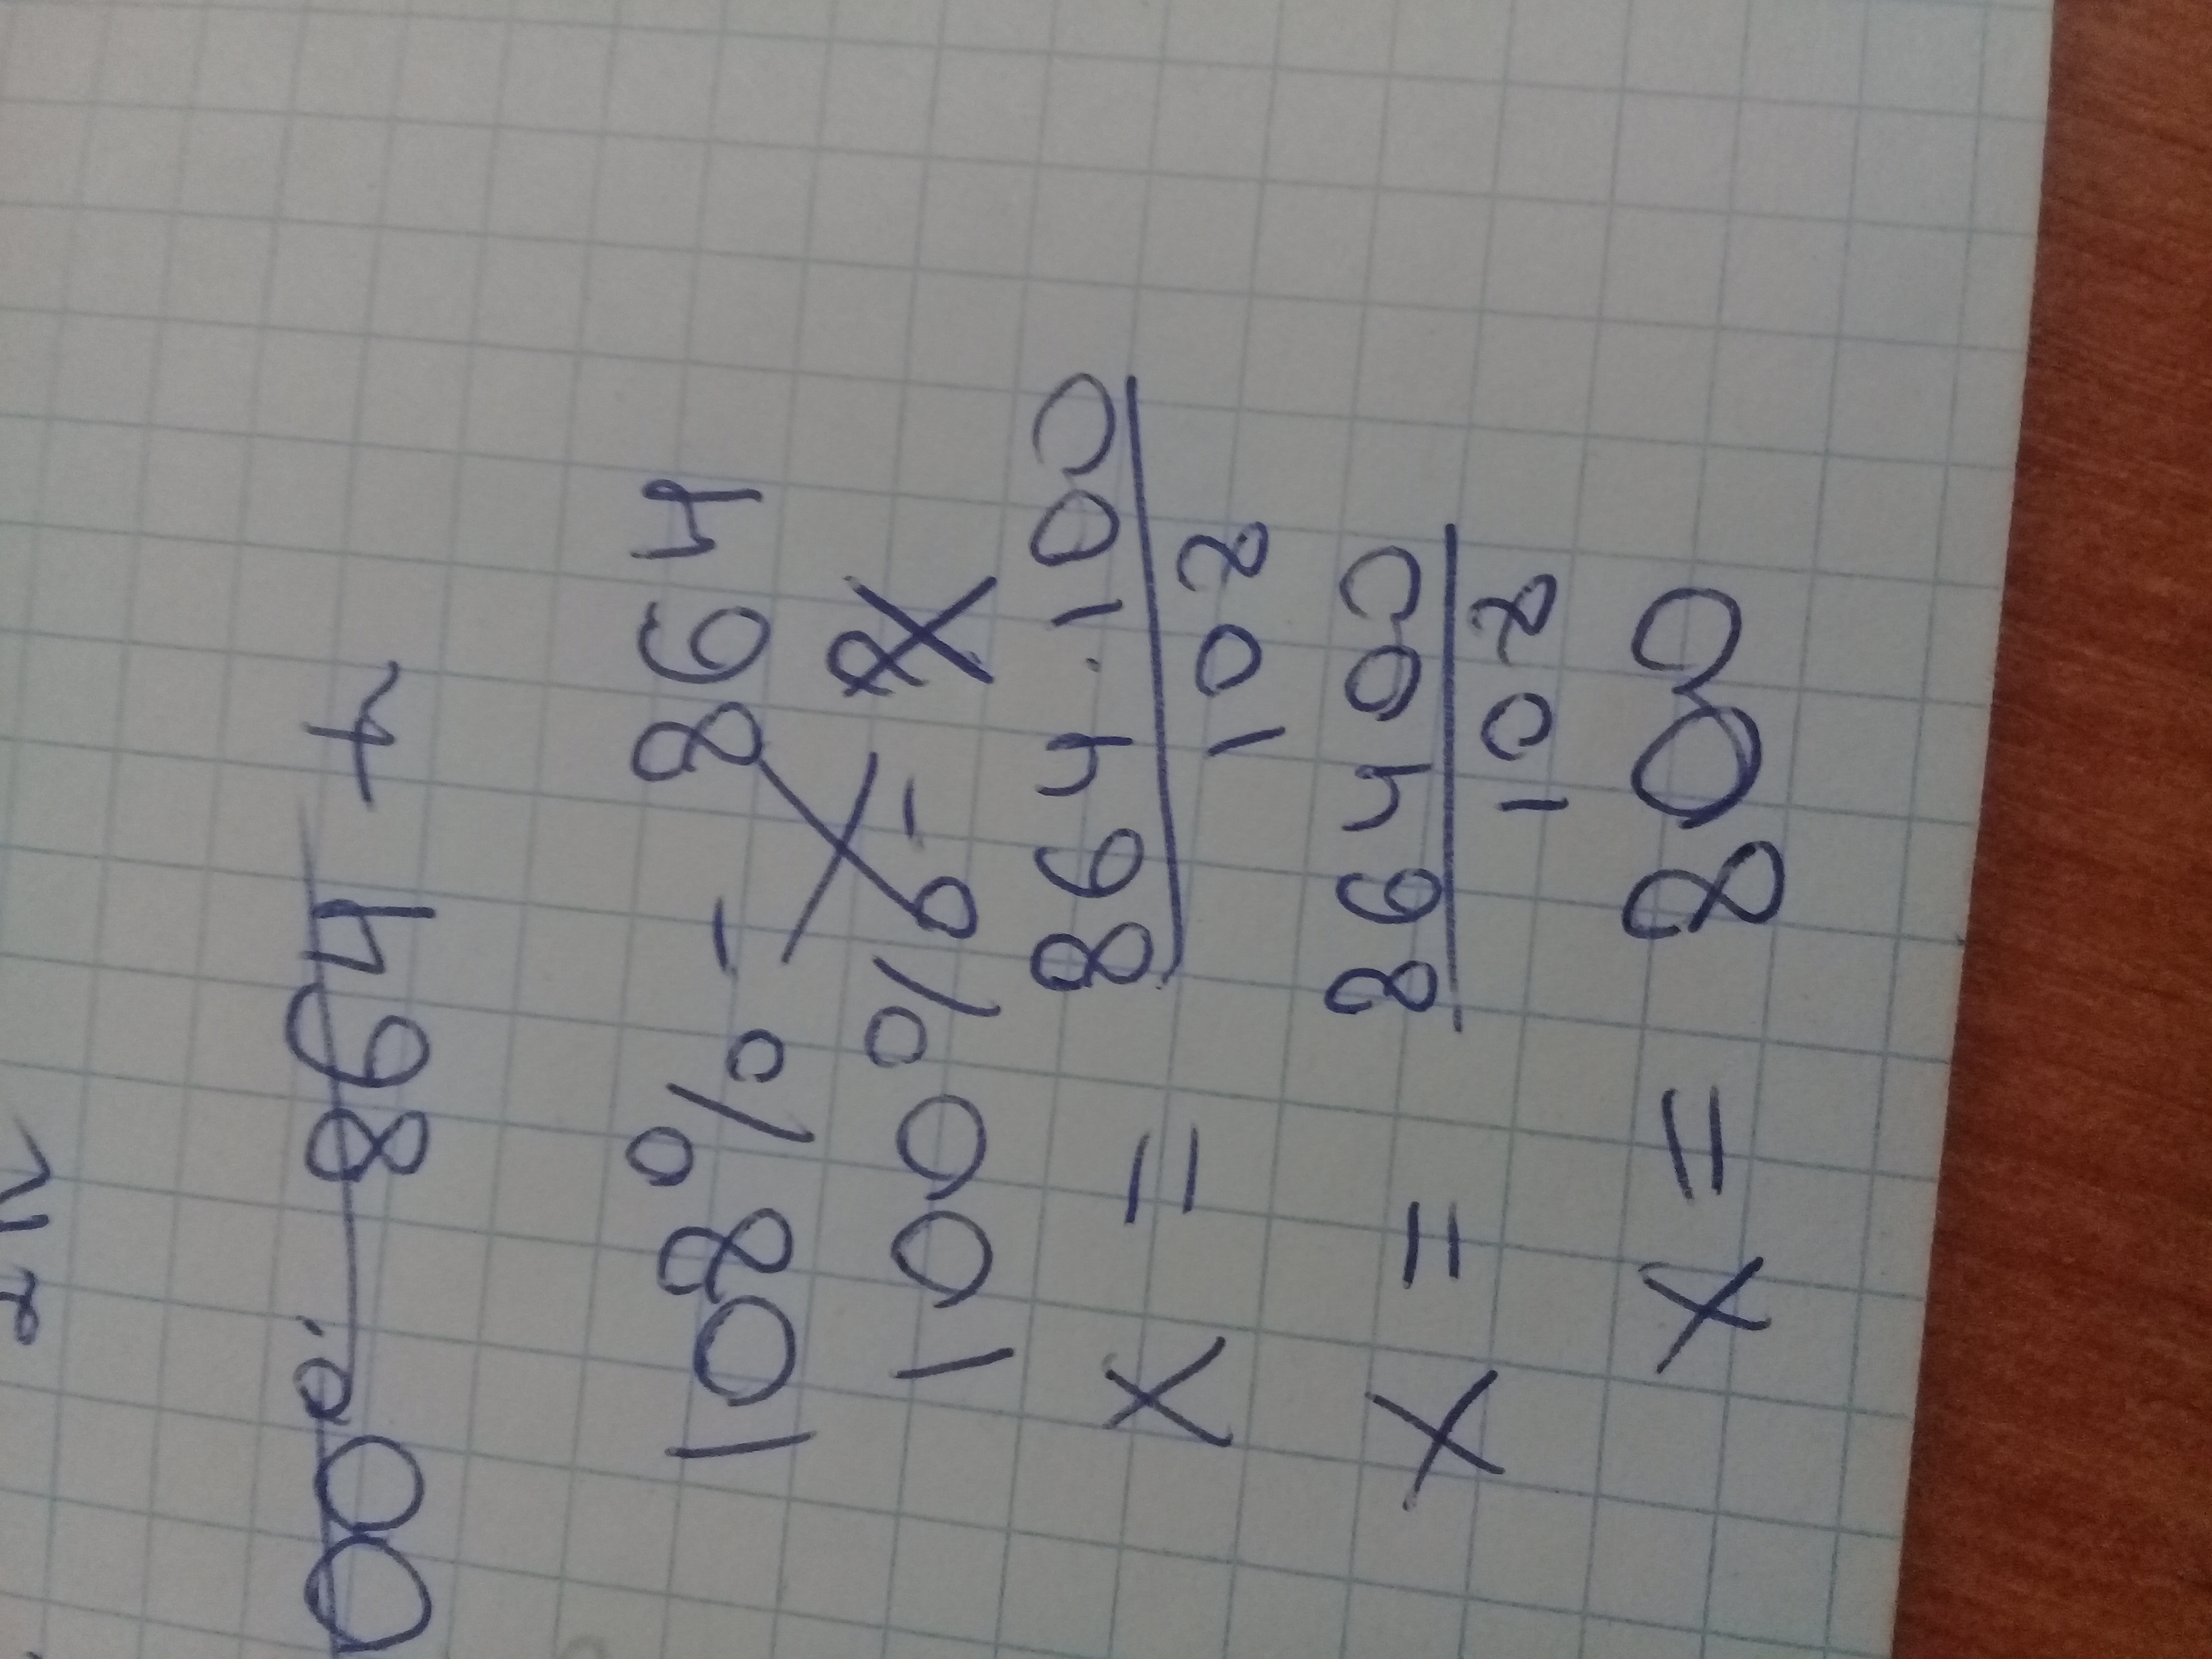 00 864 t
108% - 864
100% - x
x = 864.100
108
x = 86400
108
x = 800